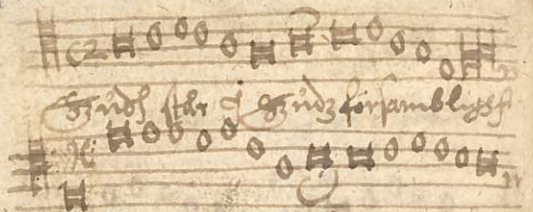 Gudh står i Gudz församblingh